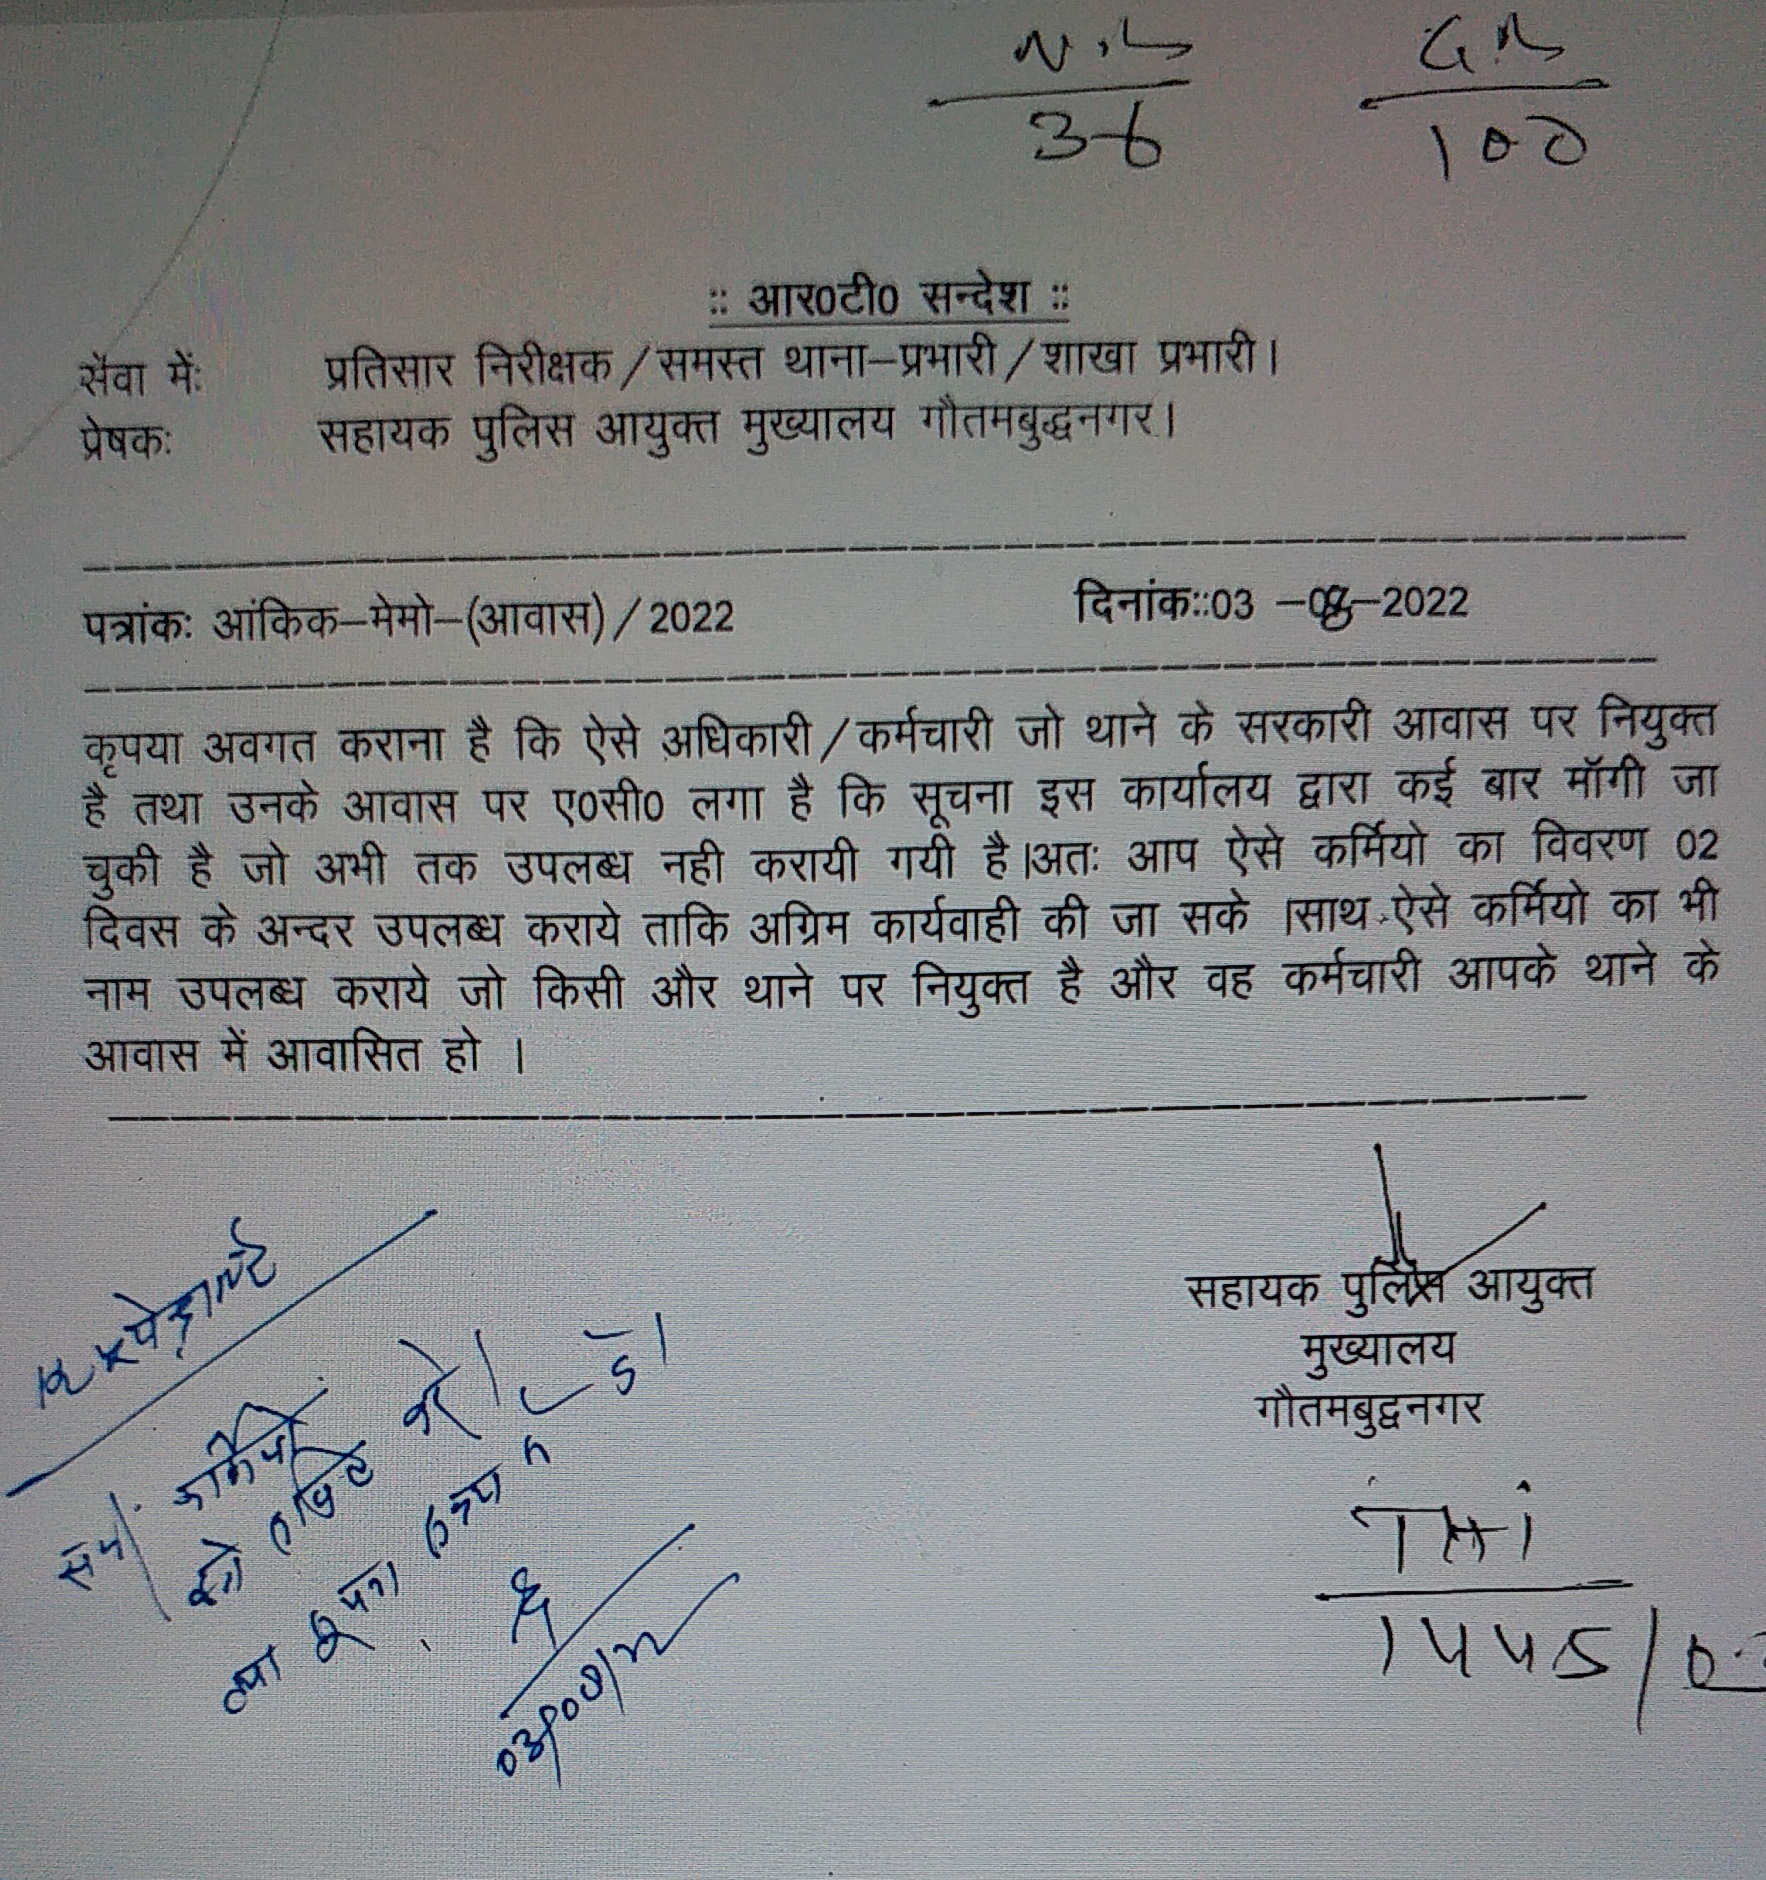 36
100
:: आर0टी0 सन्देश ::
सेवा में: प्रतिसार निरीक्षक/समस्त थाना–प्रभारी/शाखा प्रभारी।
प्रेषक: सहायक पुलिस आयुक्त मुख्यालय गौतमबुद्धनगर।
पत्रांक: आंकिक–मेमो–(आवास)/2022 दिनांक::03 –08–2022
कृपया अवगत कराना है कि ऐसे अधिकारी/कर्मचारी जो थाने के सरकारी आवास पर नियुक्त
है तथा उनके आवास पर ए0सी0 लगा है कि सूचना इस कार्यालय द्वारा कई बार मॉगी जा
चुकी है जो अभी तक उपलब्ध नही करायी गयी है।अतः आप ऐसे कर्मियो का विवरण 02
दिवस के अन्दर उपलब्ध कराये ताकि अग्रिम कार्यवाही की जा सके ।साथ ऐसे कर्मियो का भी
नाम उपलब्ध कराये जो किसी और थाने पर नियुक्त है और वह कर्मचारी आपके थाने के
आवास में आवासित हो ।
सहायक पुलिस आयुक्त
मुख्यालय
गौतमबुद्वनगर
1445/